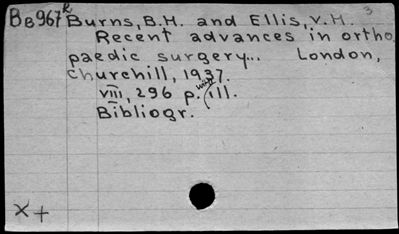 BB967R Burns, B.H. and Ellis, V.H. 3
Recent advances in ortho
paedic surgery... London,
Churchill, 1937.
viii, 296 p. ill.
Bibliogr.
X+